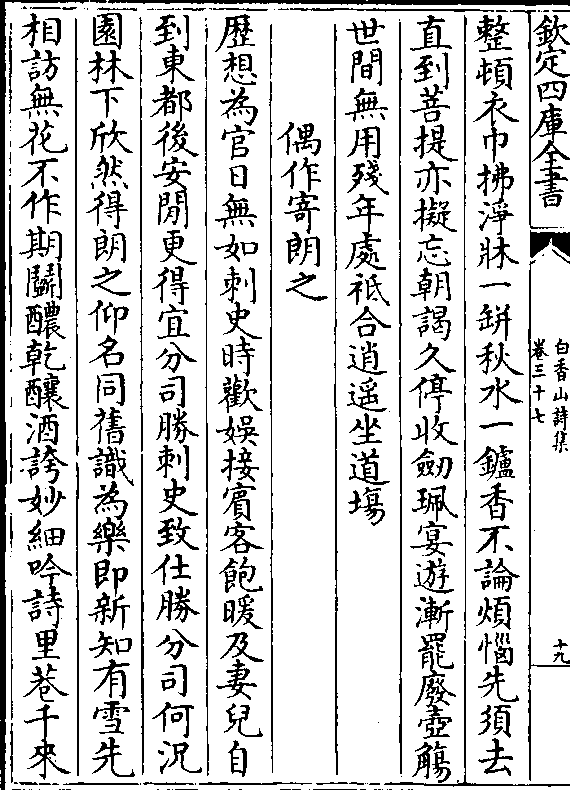 欽定四庫全書
白香山詩集
卷三十七
十九
整頓衣巾拂淨牀一缾秋水一鑪香不論煩惱先須去
直到菩提亦擬忘朝謁久停收劒珮宴遊漸罷廢壺觴
世間無用殘年處秪合逍遥坐道塲
偶作寄朗之
歴想為官日無如刺史時歡娛接賓客飽暖及妻兒自
到東都後安閒更得宜分司勝刺史致仕勝分司何況
園林下欣然得朗之仰名同舊識為樂即新知有雪先
相訪無花不作期鬬醲乾釀酒誇妙細吟詩里巷千來